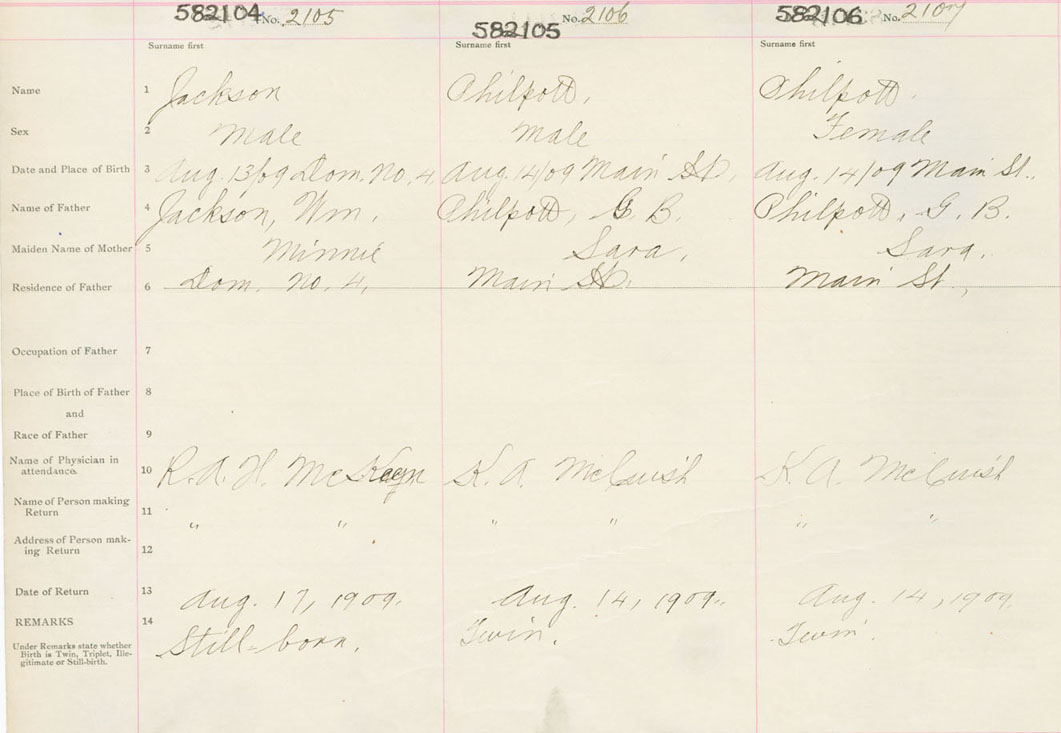 582104 No. 2105 582105 No. 2106 582106 No. 2107
Surname first Surname first Surname first
Name 1 Jackson Philpott, Philpott.
Sex 2 Male Male Female
Date and Place of Birth 3 Aug. 13/09 Dom. No. 4, Aug. 14/09 Main St. Aug. 14/09 Main St.
Name of Father 4 Jackson, Wm. Philpott, G. B. Philpott, G. B.
Maiden Name of Mother 5 Minnie Sara, Sara.
Residence of Father 6 Dom. No. 4, Main St. Main St.,
Occupation of Father 7
Place of Birth of Father 8
and
Race of Father 9
Name of Physician in
attendance. 10 R. A. H. K. A. McCuish K. A. McCuish
Name of Person making
Return 11 " " " " " "
Address of Person mak-
ing Return 12
Date of Return 13 Aug. 17, 1909. Aug. 14, 1909. Aug. 14, 1909.
REMARKS 14 Still-born. Twin. Twin.
Under Remarks state whether
Birth is Twin, Triplet, Ille-
gitimate or Still-birth.